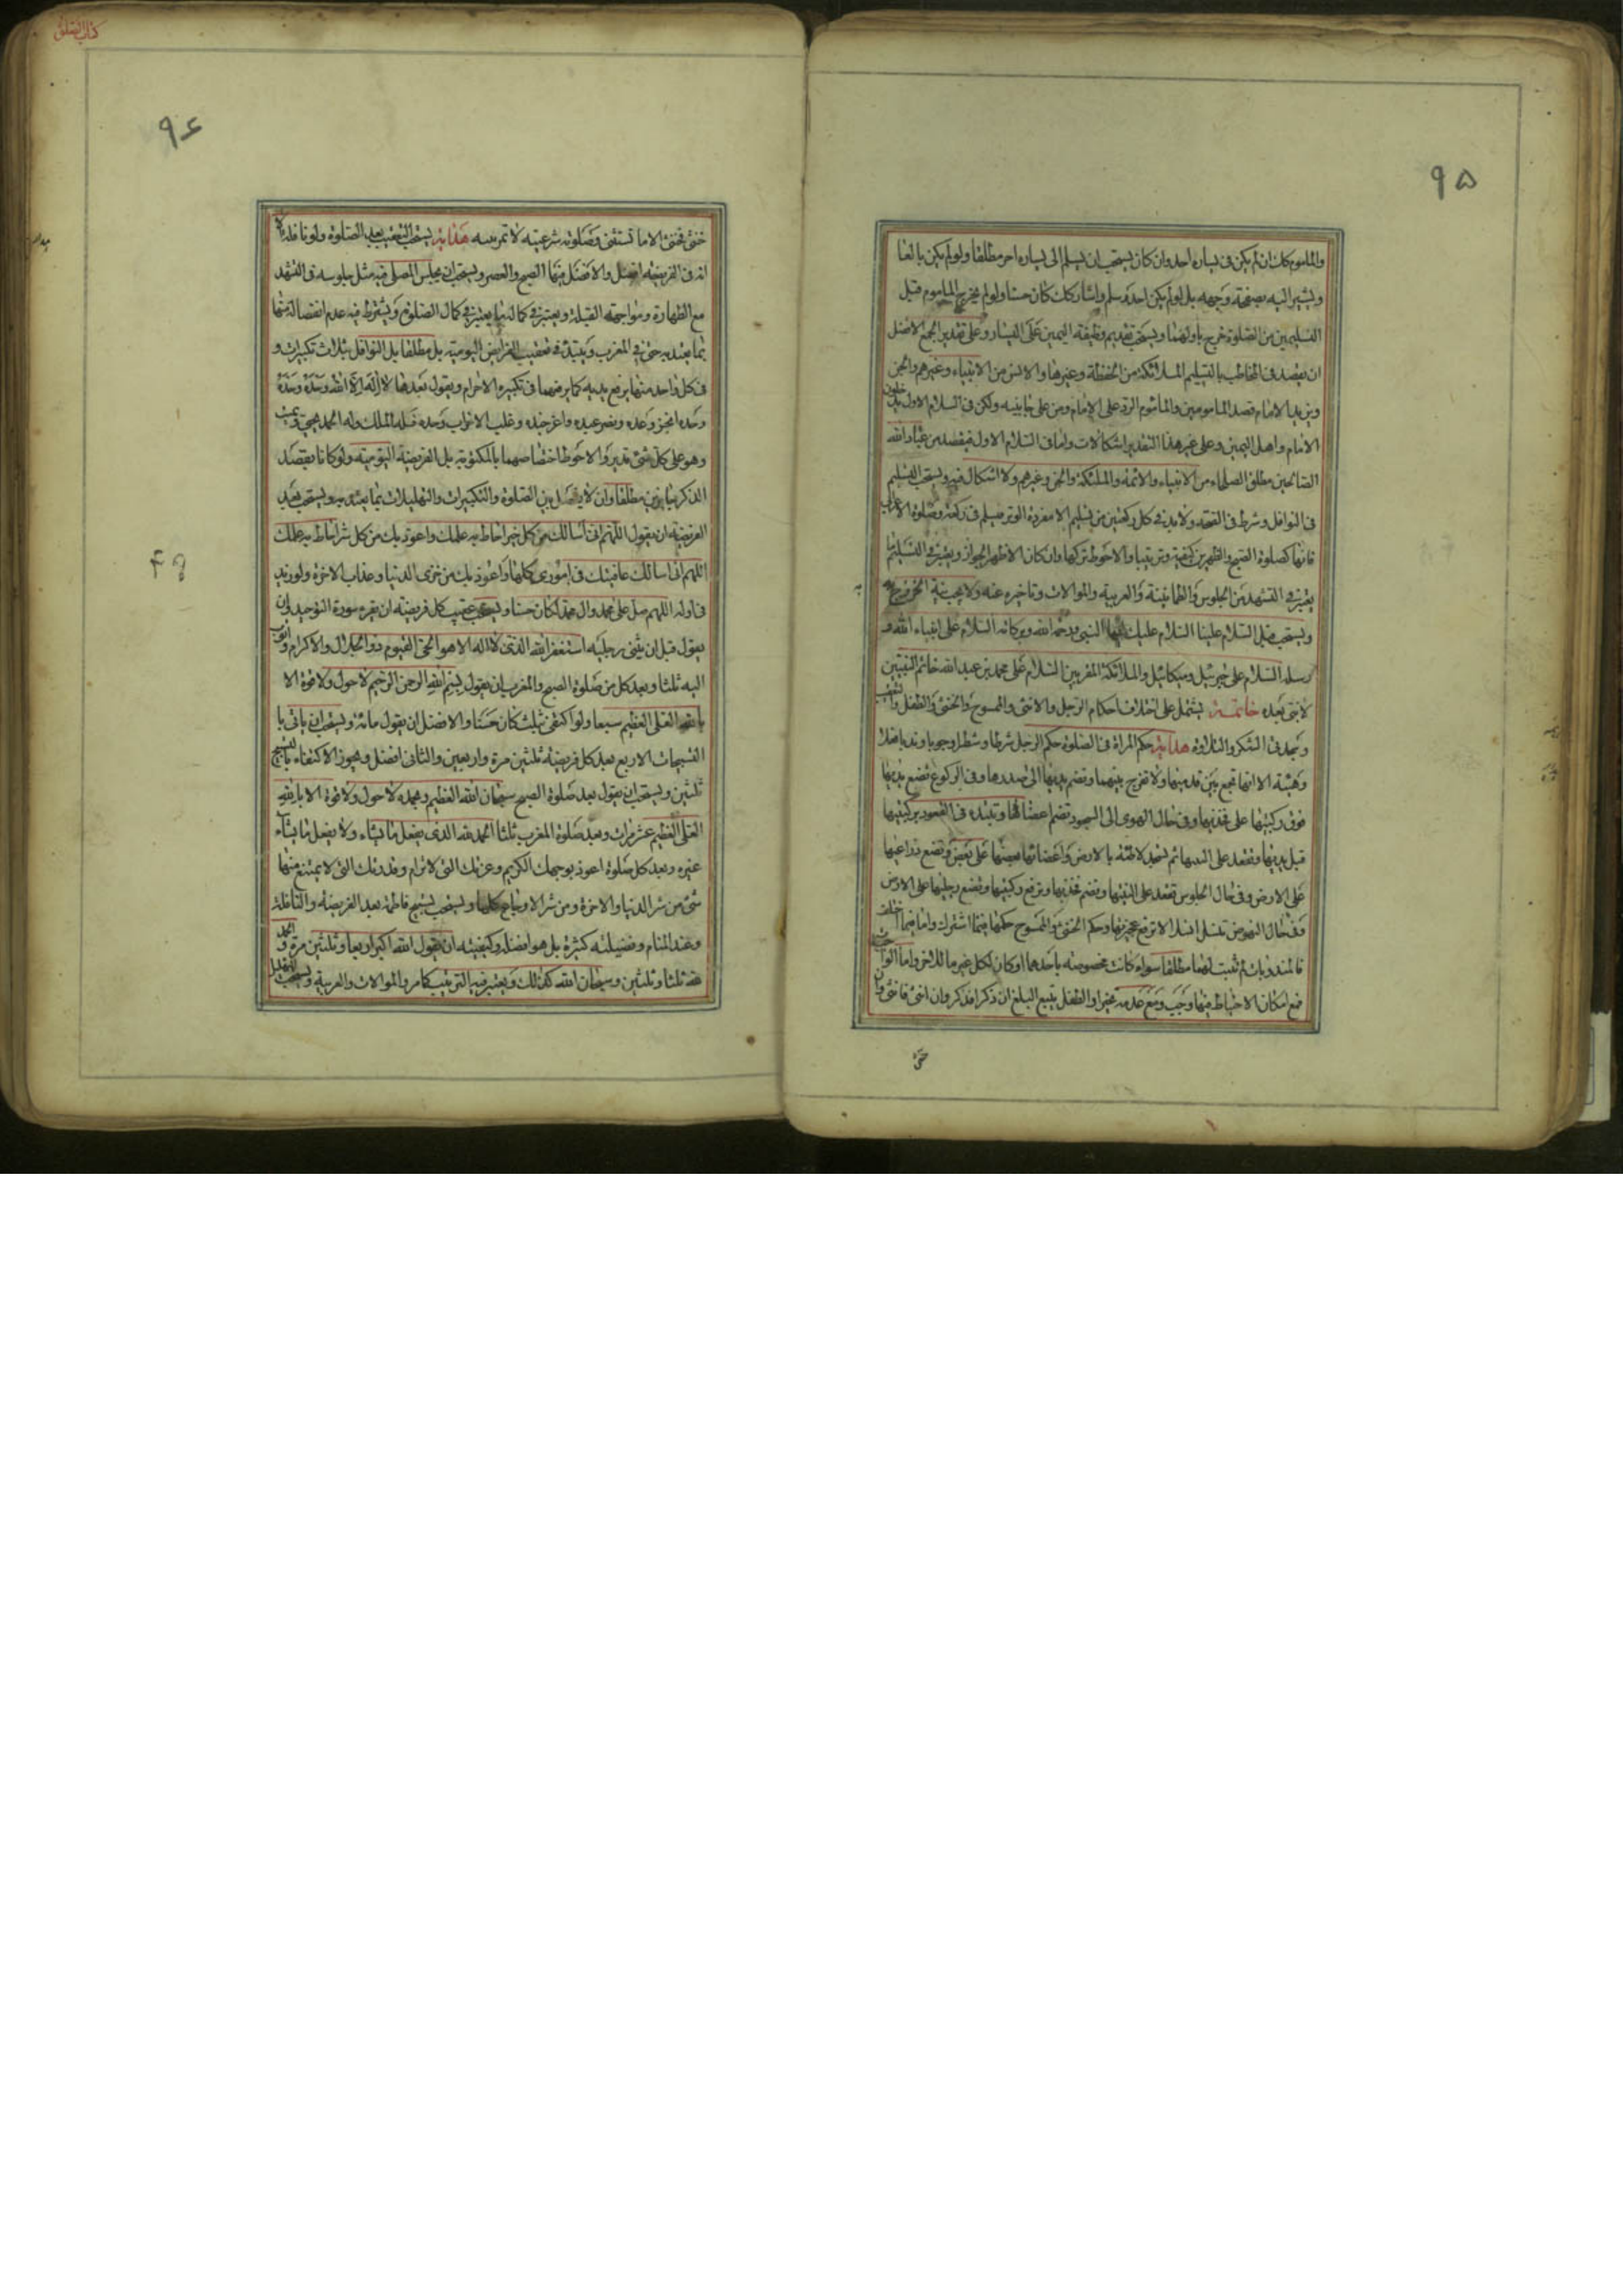 ٩۵
والمأموم كك ان لم يكن فى يساره احد وان كان يستحب ان يسلم الى يساره اخر مطلقا ولو لم يكن بالغا
ويشير اليه بصفحة وجهه بل لو لم يكن احد وسلم واشار كك كان حسنا ولو لم يخرج المأموم قبل
التسليمين من الصلوة خرج باولهما ويستحب تقديم وظيفة اليمين على اليسار وعلى تقدير الجمع الافضل
ان يقصد فى المخاطب بالتسليم الملائكة من الحفظة وغيرها والانس من الانبياء وغيرهم والجن
ويزيد الامام قصد المأمومين والمأموم الرد على الامام ومن على جانبيه ولكن فى السلام الاول يدخلون
الامام واهل اليمين وعلى غير هذا التقدير اشكالات واما فى السلام الاول فيقصد من عباد الله
الصالحين مطلق الصلحاء من الانبياء والائمة والملئكة والجن وغيرهم ولا اشكال فيه ويستحب التسليم
فى النوافل وشرط فى الصحة ولا بد فى كل ركعتين من تسليم الا مفردة الوتر فيسلم فى ركعة وصلوة الاعرابى
فانها كصلوة الصبح والظهرين كيفية وترتيبا والاحوط تركها وان كان الاظهر الجواز ويعتبر فى التسليم ما
يعتبر فى التشهد من الجلوس والطمانينة والعربية والموالات وتأخيره عنه ولا يجب نية الخروج به
ويستحب قبل السلام علينا السلام عليك ايها النبى ورحمة الله وبركاته السلام على انبياء الله و
رسله السلام على جبرئيل وميكائيل والملائكة المقربين السلام على محمد بن عبد الله خاتم النبيين
لا نبى بعده خاتمة يشتمل على اختلاف احكام الرجل والانثى والممسوح والخنثى والطفل والتعقيب
وسجدتى الشكر والتلاوة هداية حكم المرأة فى الصلوة حكم الرجل شرطا وشطرا وجوبا وندبا فعلا
وهيئة الا انها تجمع بين قدميها ولا تفرج بينهما وتضم يديها الى صدرها وفى الركوع تضع يديها
فوق ركبتيها على فخذيها وفى حال الهوى الى السجود تضم اعضائها وتبتدء فى القعود بركبتيها
قبل يديها وتقعد على اليتيها ثم تسجد لاطئة بالارض واعضائها بعضها على بعض وتضع ذراعيها
على الارض وفى حال الجلوس تقعد على اليتيها وتضم فخذيها وترفع ركبتيها وتضع رجليها على الارض
وفى حال النهوض تنسل انسلالا ترفع عجيزتها وحكم الخنثى والممسوح حكمها فيما اشترك واما فيما اختلف
فالمندوبات لم تثبت لهما مطلقا سواء كانت مخصوصة باحدهما او كان لكل غير ما للاخر واما الواجبات
فمع امكان الاحتياط فيها وجب ومع عدمه تخيرا والطفل يتبع البلغ ان ذكرا فذكر وان انثى فانثى وان
خنثى
كتاب الصلوة
٩۶
خنثى فخنثى الا ما تستثنى وصلوته شرعية لا تمرينية هداية يستحب التعقيب بعد الصلوة ولو نافلة الا
انه فى الفريضة افضل والافضل منها الصبح والعصر ويستحب ان يجلس المصلى فيه مثل جلوسه فى التشهد
مع الطهارة ومواجهة القبلة ويعتبر فى كماله ما يعتبر فى كمال الصلوة ويشترط فيه عدم انفصاله منها
بما يعتد به حتى فى المغرب ويبتدئ فى تعقيب الفرايض اليومية بل مطلقا بل النوافل بثلاث تكبيرات و
فى كل واحد منها يرفع يديه كما يرفعهما فى تكبيرة الاحرام ويقول بعدها لا اله الا الله وحده وحده
وحده انجز وعده ونصر عبده واعز جنده وغلب الاحزاب وحده فله الملك وله الحمد يحيى ويميت
وهو على كل شئ قدير والاحوط اختصاصهما بالمكتوبة بل الفريضة اليومية ولو كانا بقصد
الذكر جايزين مطلقا وان لا يفصل بين الصلوة والتكبيرات والتهليلات بما يعتد به ويستحب بعد
الفريضة ان يقول اللهم انى اسالك من كل خير احاط به علمك واعوذ بك من كل شر احاط به علمك
اللهم انى اسالك عافيتك فى امورى كلها واعوذ بك من خزى الدنيا وعذاب الاخرة ولو زيد
فى اوله اللهم صل على محمد وال محمد لكان حسنا ويستحب عقيب كل فريضة ان يقرء سورة التوحيد وان
يقول قبل ان يثنى رجليه استغفر الله الذى لا اله الا هو الحى القيوم ذو الجلال والاكرام واتوب
اليه ثلثا وبعد كل من صلوة الصبح والمغرب ان يقول بسم الله الرحمن الرحيم لا حول ولا قوة الا
بالله العلى العظيم سبعا ولو اكتفى بثلث كان حسنا والافضل ان يقول مائة ويستحب ان ياتى با
التسبيحات الاربع بعد كل فريضة ثلثين مرة واربعين والثانى افضل ويجوز الاكتفاء بالتسبيح
ثلثين ويستحب ان يقول بعد صلوة الصبح سبحان الله العظيم وبحمده لا حول ولا قوة الا بالله
العلى العظيم عشر مرات وبعد صلوة المغرب ثلثا الحمد لله الذى يفعل ما يشاء ولا يفعل ما يشاء
غيره وبعد كل صلوة اعوذ بوجهك الكريم وعزتك التى لا ترام وقدرتك التى لا يمتنع منها
شئ من شر الدنيا والاخرة ومن شر الاوجاع كلها ويستحب تسبيح فاطمة بعد الفريضة والنافلة
وعند المنام وفضيلته كثيرة بل هو افضله وكيفيته ان يقول الله اكبر اربعا وثلثين مرة والحمد
لله ثلثا وثلثين وسبحان الله كذلك ويعتبر فيه الترتيب كما مر والموالات والعربية ويستحب